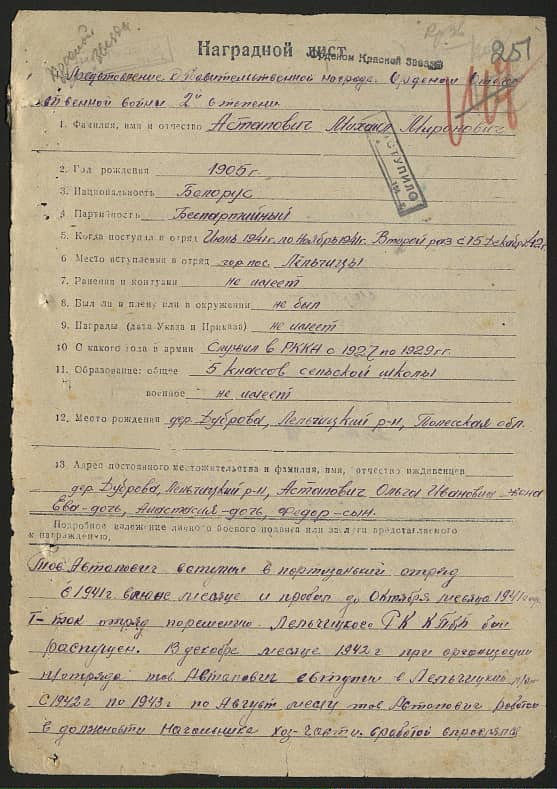 251
Наградной лист
Орденом Красной звезды
Представление к Правительственной награде. Орденом Отече-
ственной войны 2й степени
1. Фамилия, имя и отчество Астапович Михаил Миронович
ПОСТУПИЛО
2. Год рождения 1905 г.
3. Национальность Белорус
4. Партийность Беспартийный
5. Когда поступил в отряд Июнь 1941г. по Ноябрь 1941г. Второй раз с 15 Декабря 42г.
6 Место вступления в отряд гор. пос. Лельчицы
7. Ранения и контузии не имеет
8. Был ли в плену или в окружении не был
9. Награды (дата Указа и Приказа) не имеет
10 С какого года в армии Служил в РККА с 1927 по 1929 гг.
11. Образование: общее 5 классов сельской школы
военное не имеет
12. Место рождения дер. Дуброва, Лельчицкий р-н, Полесская обл.
13. Адрес постоянного местожительства и фамилия, имя, отчество иждивенцев
дер. Дуброва, Лельчицкий р-н, Астапович Ольга Ивановна - жена
Ева-дочь, Анастасия-дочь, Федор-сын.
Подробное изложение личного боевого подвига или заслуги представляемого
к награждению,
тов Автапович вступил в портизанский отряд
с 1941г в июне месяце и пробыл до Октября месяца 1941
отряд порешению Лельчицкого РК КПбБ был
распущен. В декабре месяце 1942 г при организации
п/отряда тов Автапович вступил в Лельчицкий
с 1942 г по 1943 г по Август месяц тов Автапович работал
в должности Начальника хоз-части. С работой справлялся